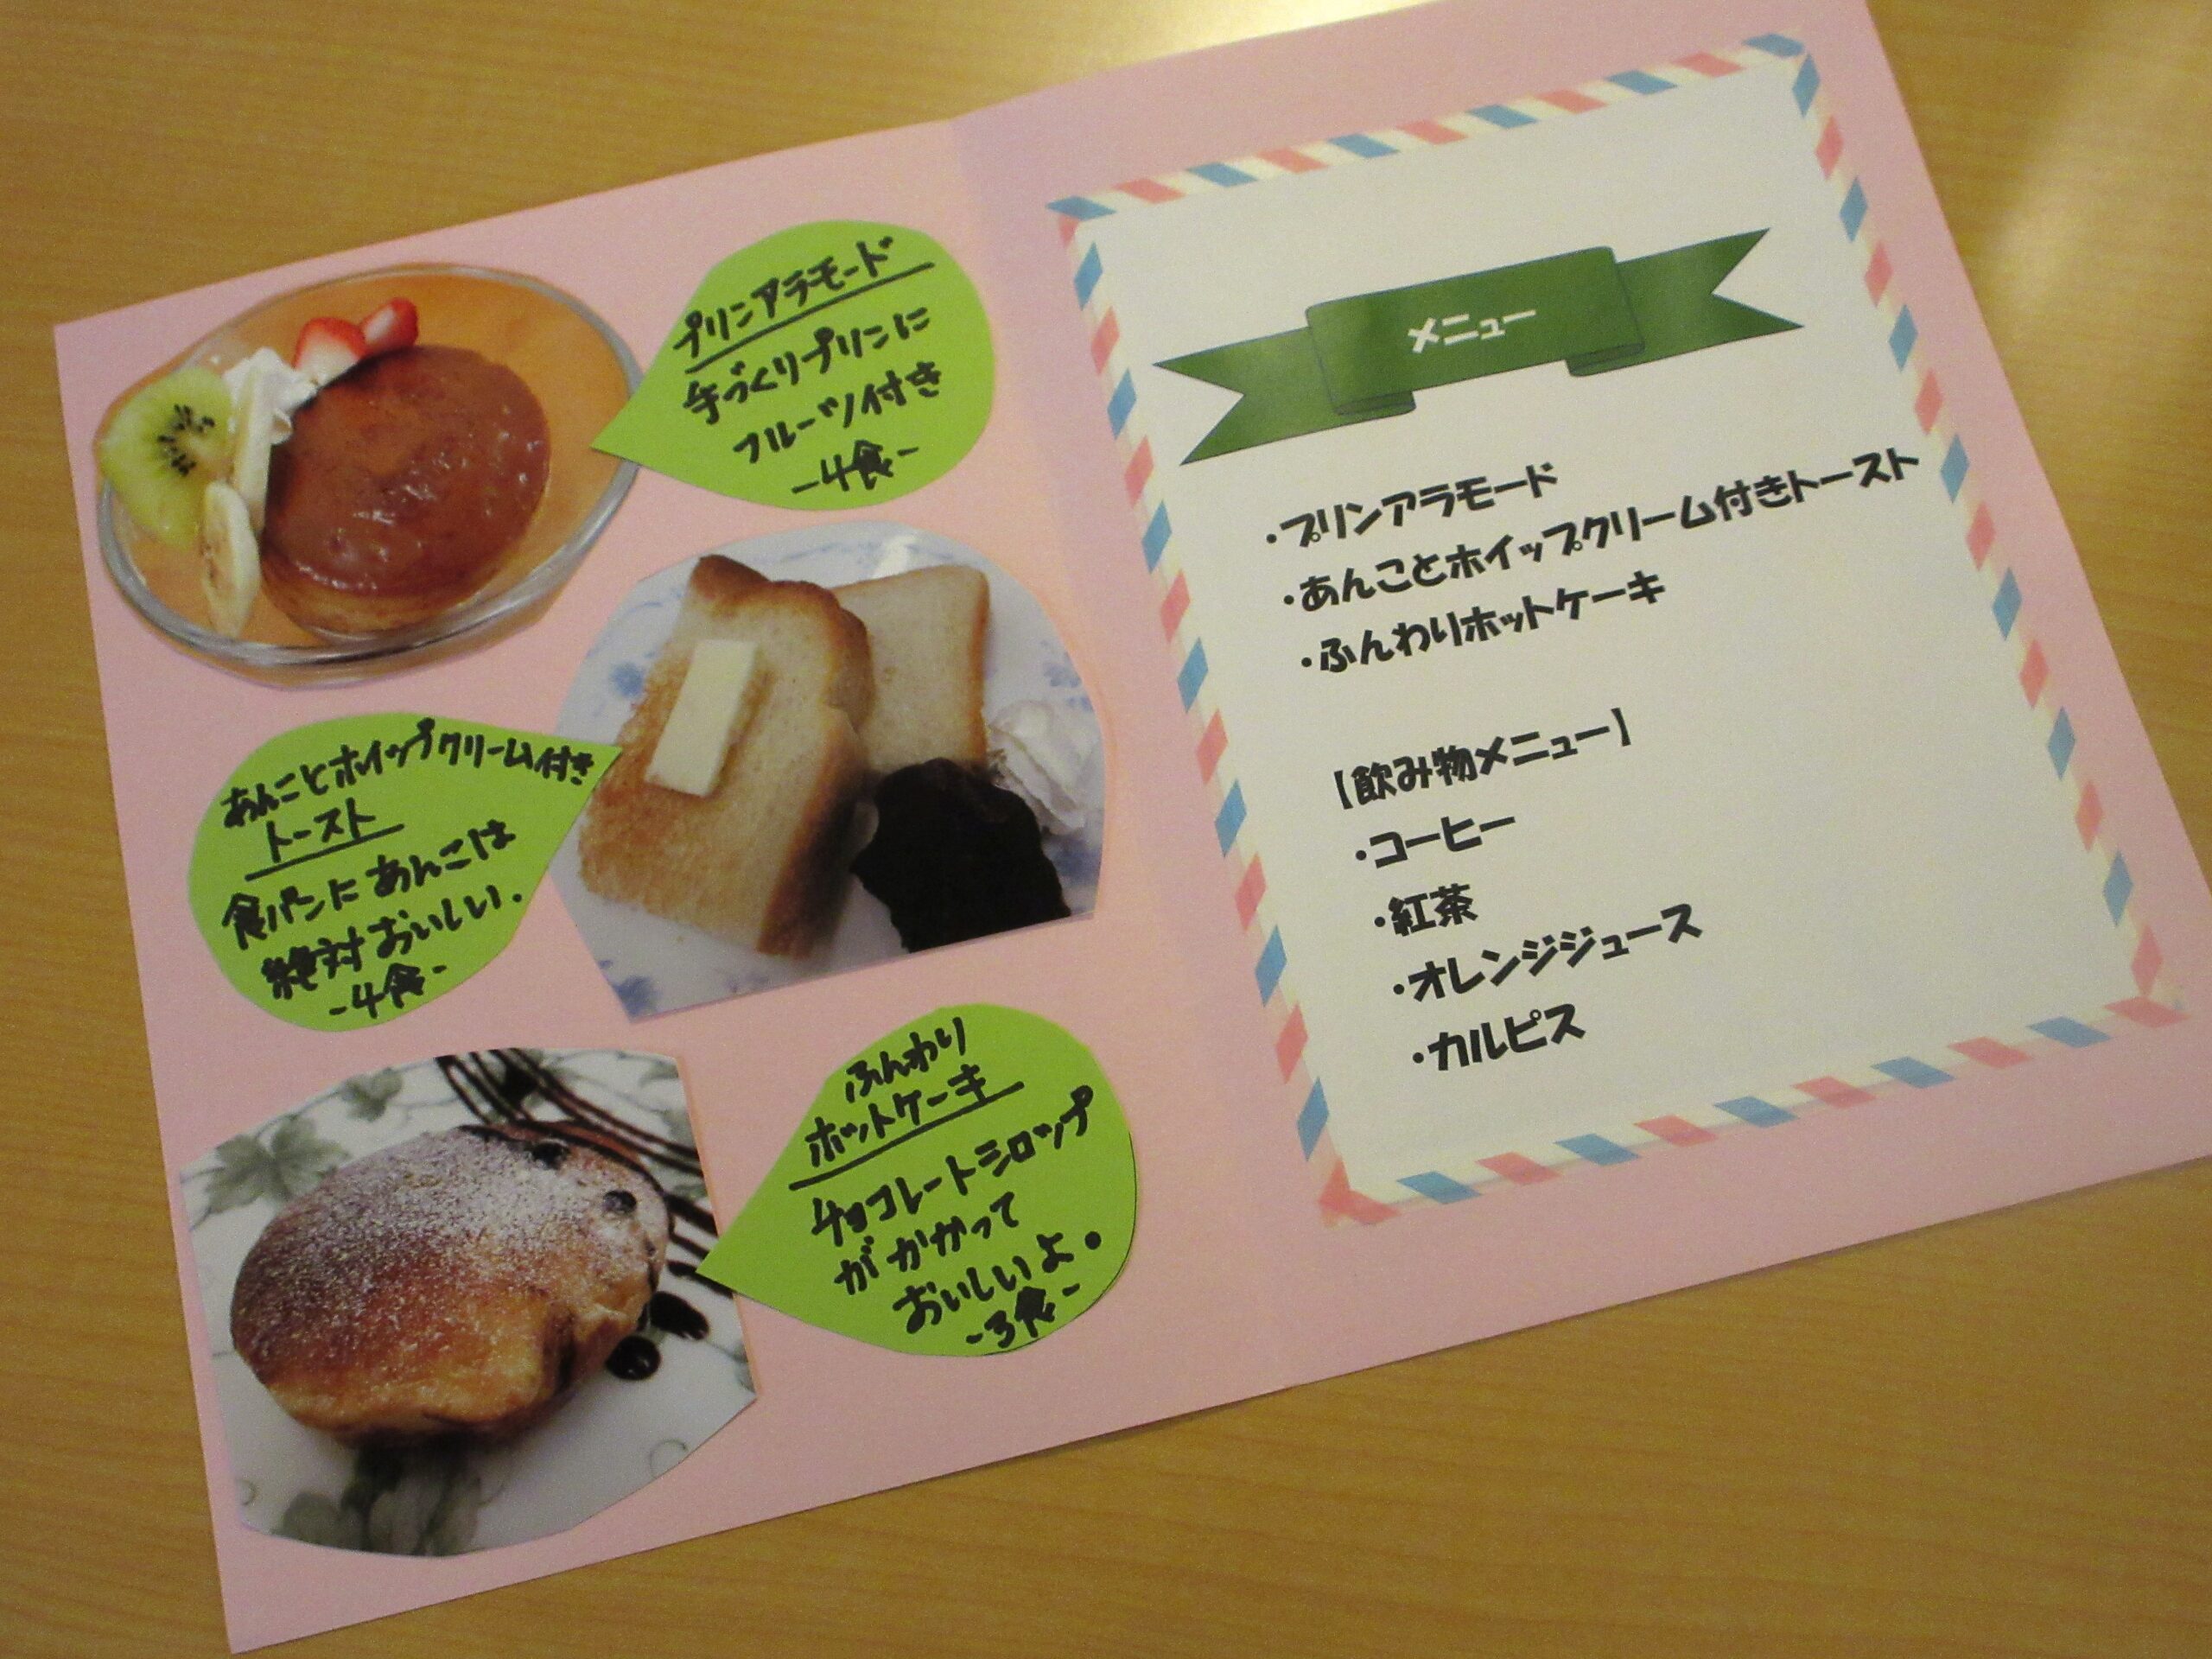 プリンアラモード
手づくりプリンに
フルーツ付き
-4食-
あんことホイップクリーム付き
トースト
食パンにあんこは
絶対おいしい.
-4食-
ふんわり
ホットケーキ
チョコレートシロップ
がかかって
おいしいよ。
-3食-
メニュー
・プリンアラモード
・あんことホイップクリーム付きトースト
・ふんわりホットケーキ
【飲み物メニュー】
・コーヒー
・紅茶
・オレンジジュース
・カルピス